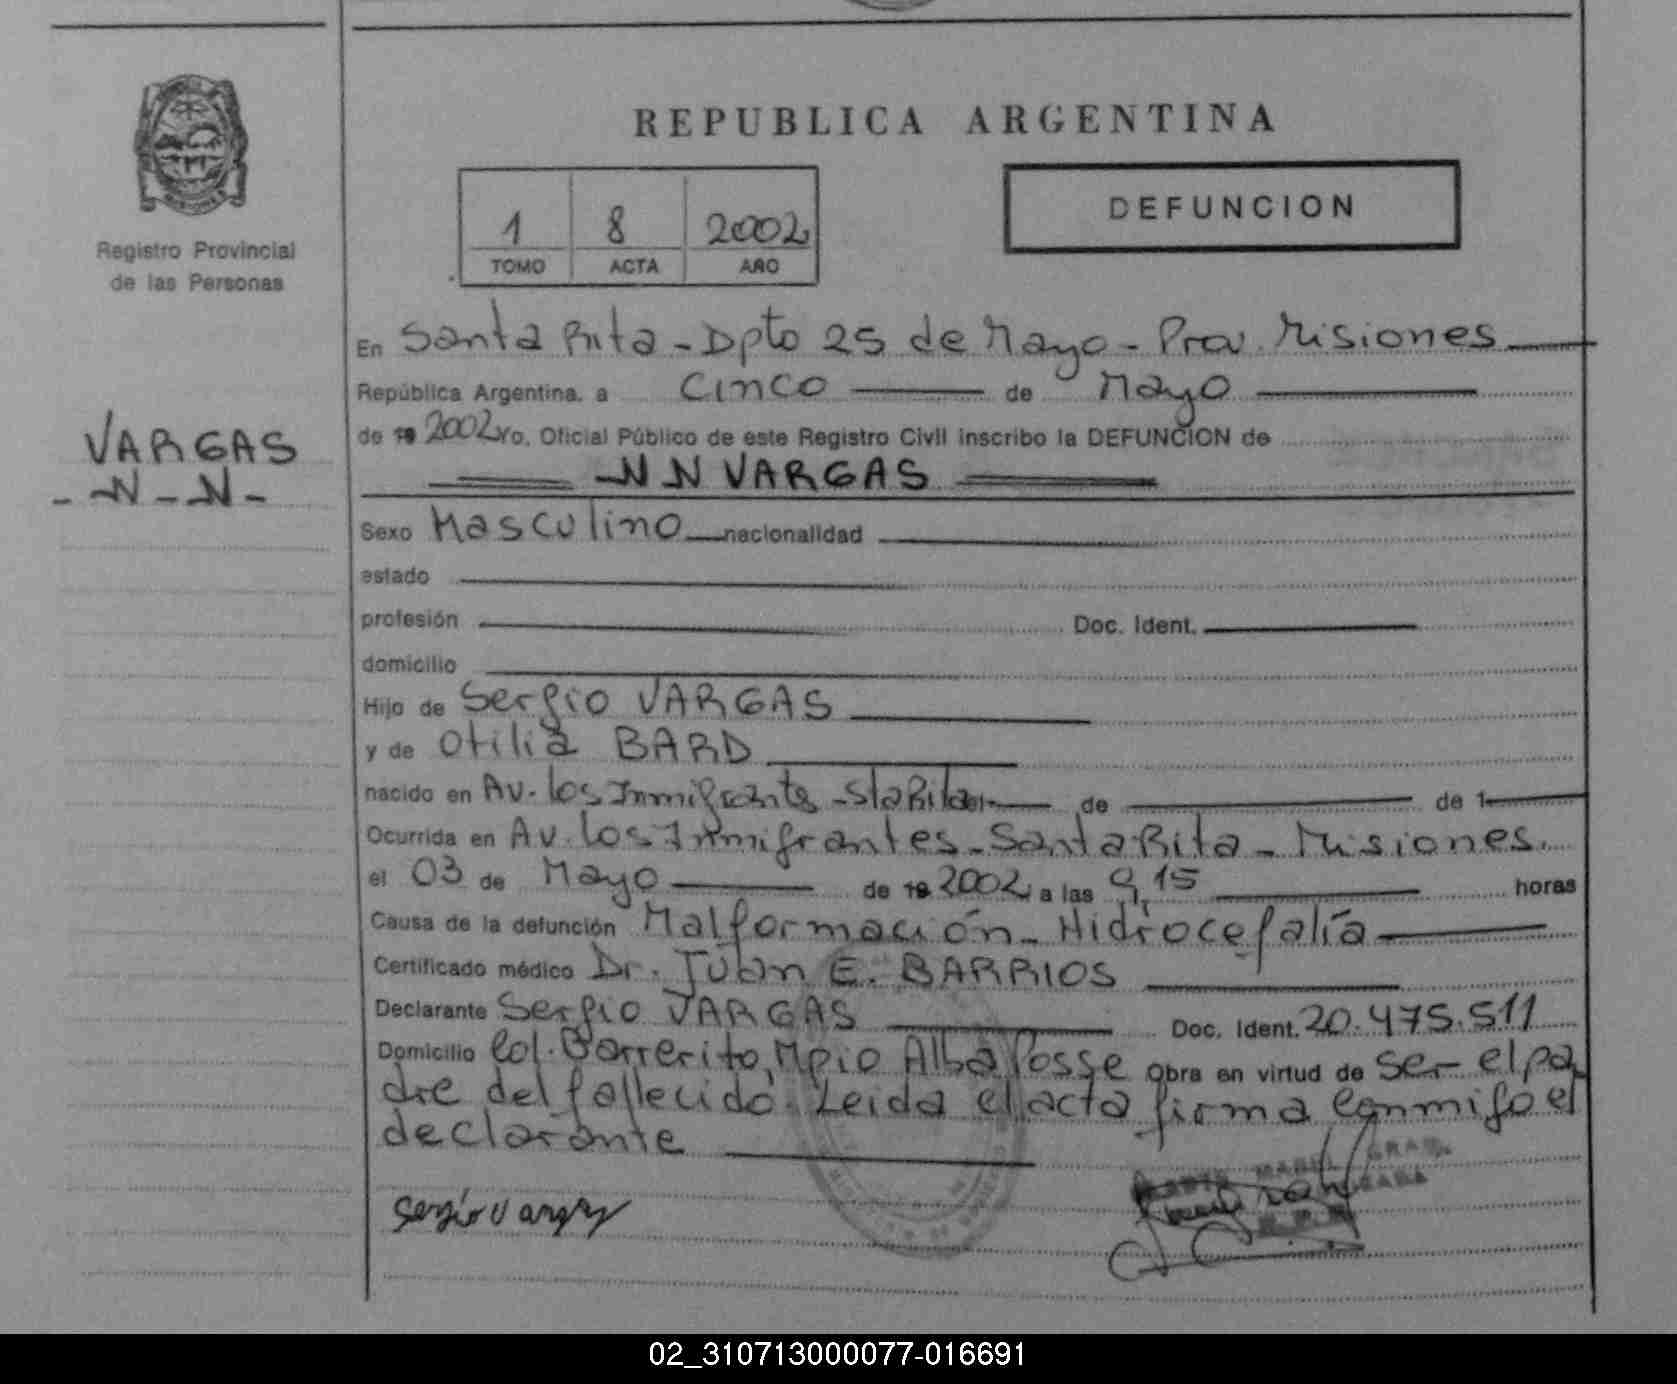 REPUBLICA ARGENTINA
DEFUNCION
1 8 2002
TOMO ACTA AÑO
Registro Provincial
de las Personas
VARGAS
- N - N -
En Santa Rita - Dpto 25 de Mayo - Prov. Misiones
República Argentina, a Cinco de Mayo
de 19 2002 Yo, Oficial Público de este Registro Civil inscribo la DEFUNCION de
N N VARGAS
Sexo Masculino nacionalidad
estado
profesión Doc. Ident.
domicilio
Hijo de Sergio VARGAS
y de Otilia BARD
nacido en Av. los Inmigrantes - Sta Rita el de de 1
Ocurrida en Av. los Inmigrantes - Santa Rita - Misiones.
el 03 de Mayo de 19 2002 a las 9,15 horas
Causa de la defunción Malformación - Hidrocefalia
Certificado médico Dr. Juan E. BARRIOS
Declarante Sergio VARGAS Doc. Ident. 20.475.511
Domicilio Col. Barrerito, Mpio Alba Posse Obra en virtud de ser el pa
dre del fallecido. Leida el acta firma conmigo el
declarante
Sergio Vargas
MABEL
02_310713000077-016691